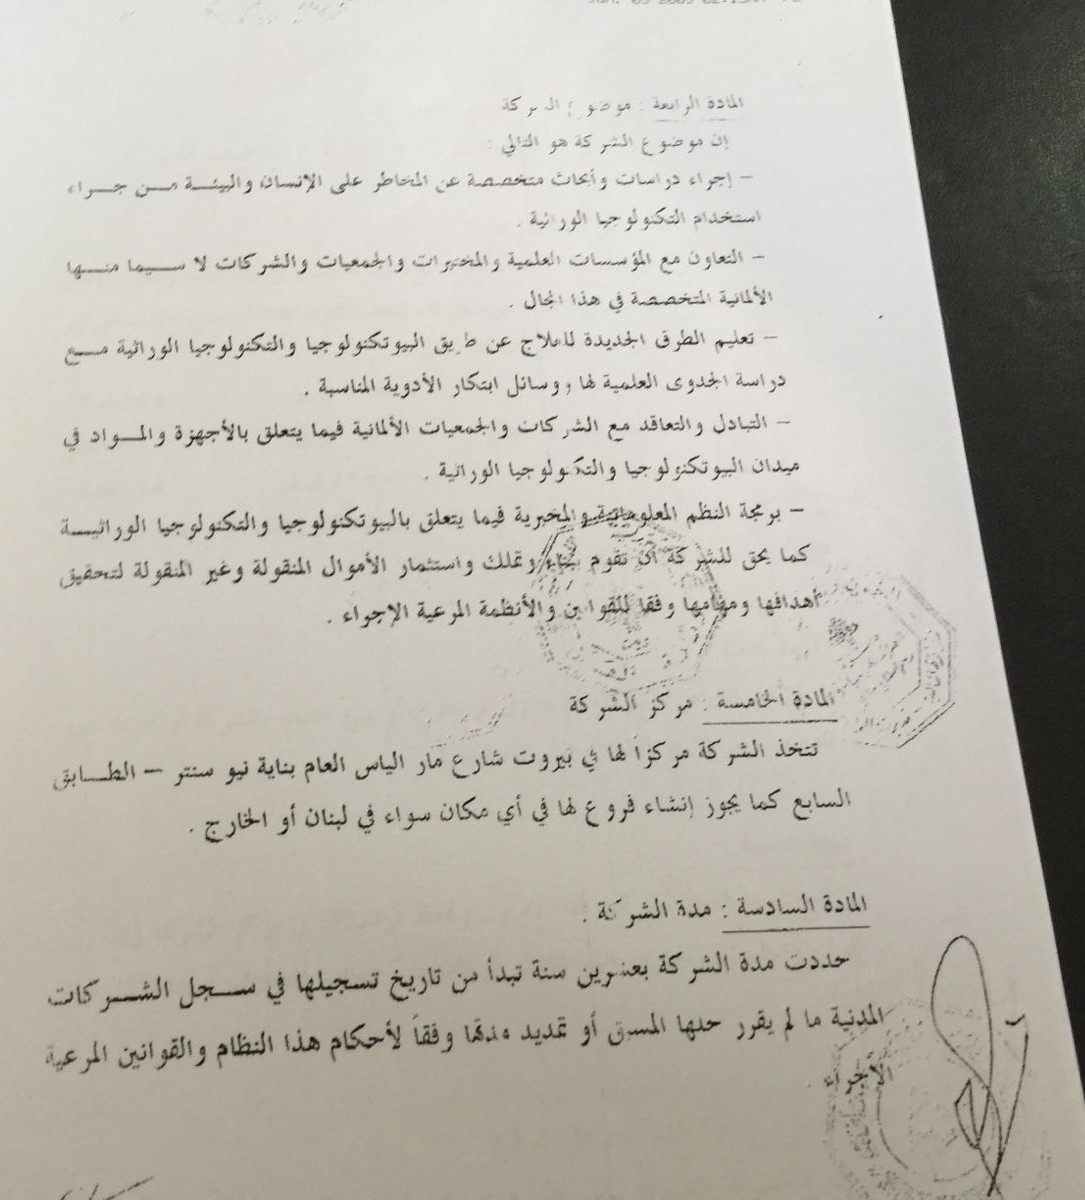 المادة الرابعة : موضوع الشركة
إن موضوع الشركة هو التالي :
– إجراء دراسات وأبحاث متخصصة عن المخاطر على الإنسان والبيئة من جراء
استخدام التكنولوجيا الوراثية .
– التعاون مع المؤسسات العلمية والمختبرات والجمعيات والشركات لا سيما منها
الألمانية المتخصصة في هذا المجال .
– تعليم الطرق الجديدة للعلاج عن طريق البيوتكنولوجيا والتكنولوجيا الوراثية مع
دراسة الجدوى العلمية لها ووسائل ابتكار الأدوية المناسبة .
– التبادل والتعاقد مع الشركات والجمعيات الألمانية فيما يتعلق بالأجهزة والمواد في
ميدان البيوتكنولوجيا والتكنولوجيا الوراثية .
– برمجة النظم المعلوماتية والمخبرية فيما يتعلق بالبيوتكنولوجيا والتكنولوجيا الوراثية
كما يحق للشركة أن تقوم بناء وتملك واستثمار الأموال المنقولة وغير المنقولة لتحقيق
أهدافها ومهامها وفقا للقوانين والأنظمة المرعية الإجراء .
المادة الخامسة : مركز الشركة
تتخذ الشركة مركزاً لها في بيروت شارع مار الياس العام بناية نيو سنتر – الطابق
السابع كما يجوز إنشاء فروع لها في أي مكان سواء في لبنان أو الخارج .
المادة السادسة : مدة الشركة .
حددت مدة الشركة بعشرين سنة تبدأ من تاريخ تسجيلها في سجل الشركات
المدنية ما لم يقرر حلها المسبق أو تمديد مدتها وفقاً لأحكام هذا النظام والقوانين المرعية
الأجراء .